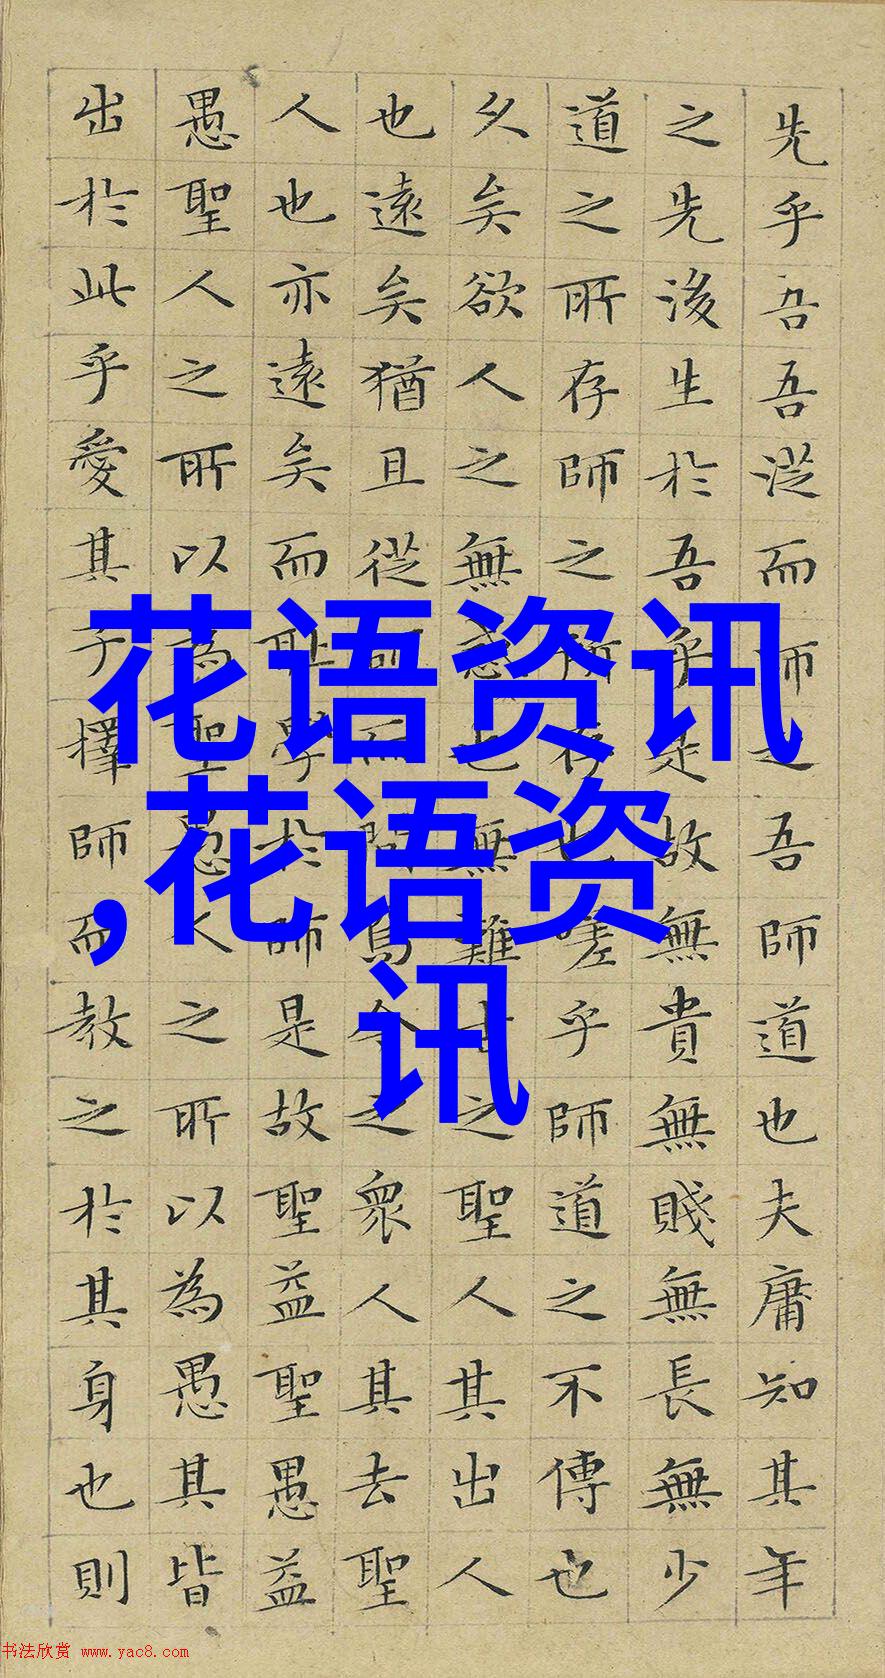 先乎吾吾從而師之吾師道也夫庸知其年
之先後生於吾乎是故無貴無賤無長無少
道之所存師之所存也嗟乎師道之不傳也
久矣欲人之無惑也無難古之聖人其出人
也遠矣猶且從師而問焉今之衆人其去聖
人也亦遠矣而耻學於師是故聖益聖愚益
愚聖人之所以為聖愚人之所以為愚其皆
出於此乎愛其子擇師而教之於其身也則
花语资讯
,花语资
讯
书法欣赏 www.yac8.com